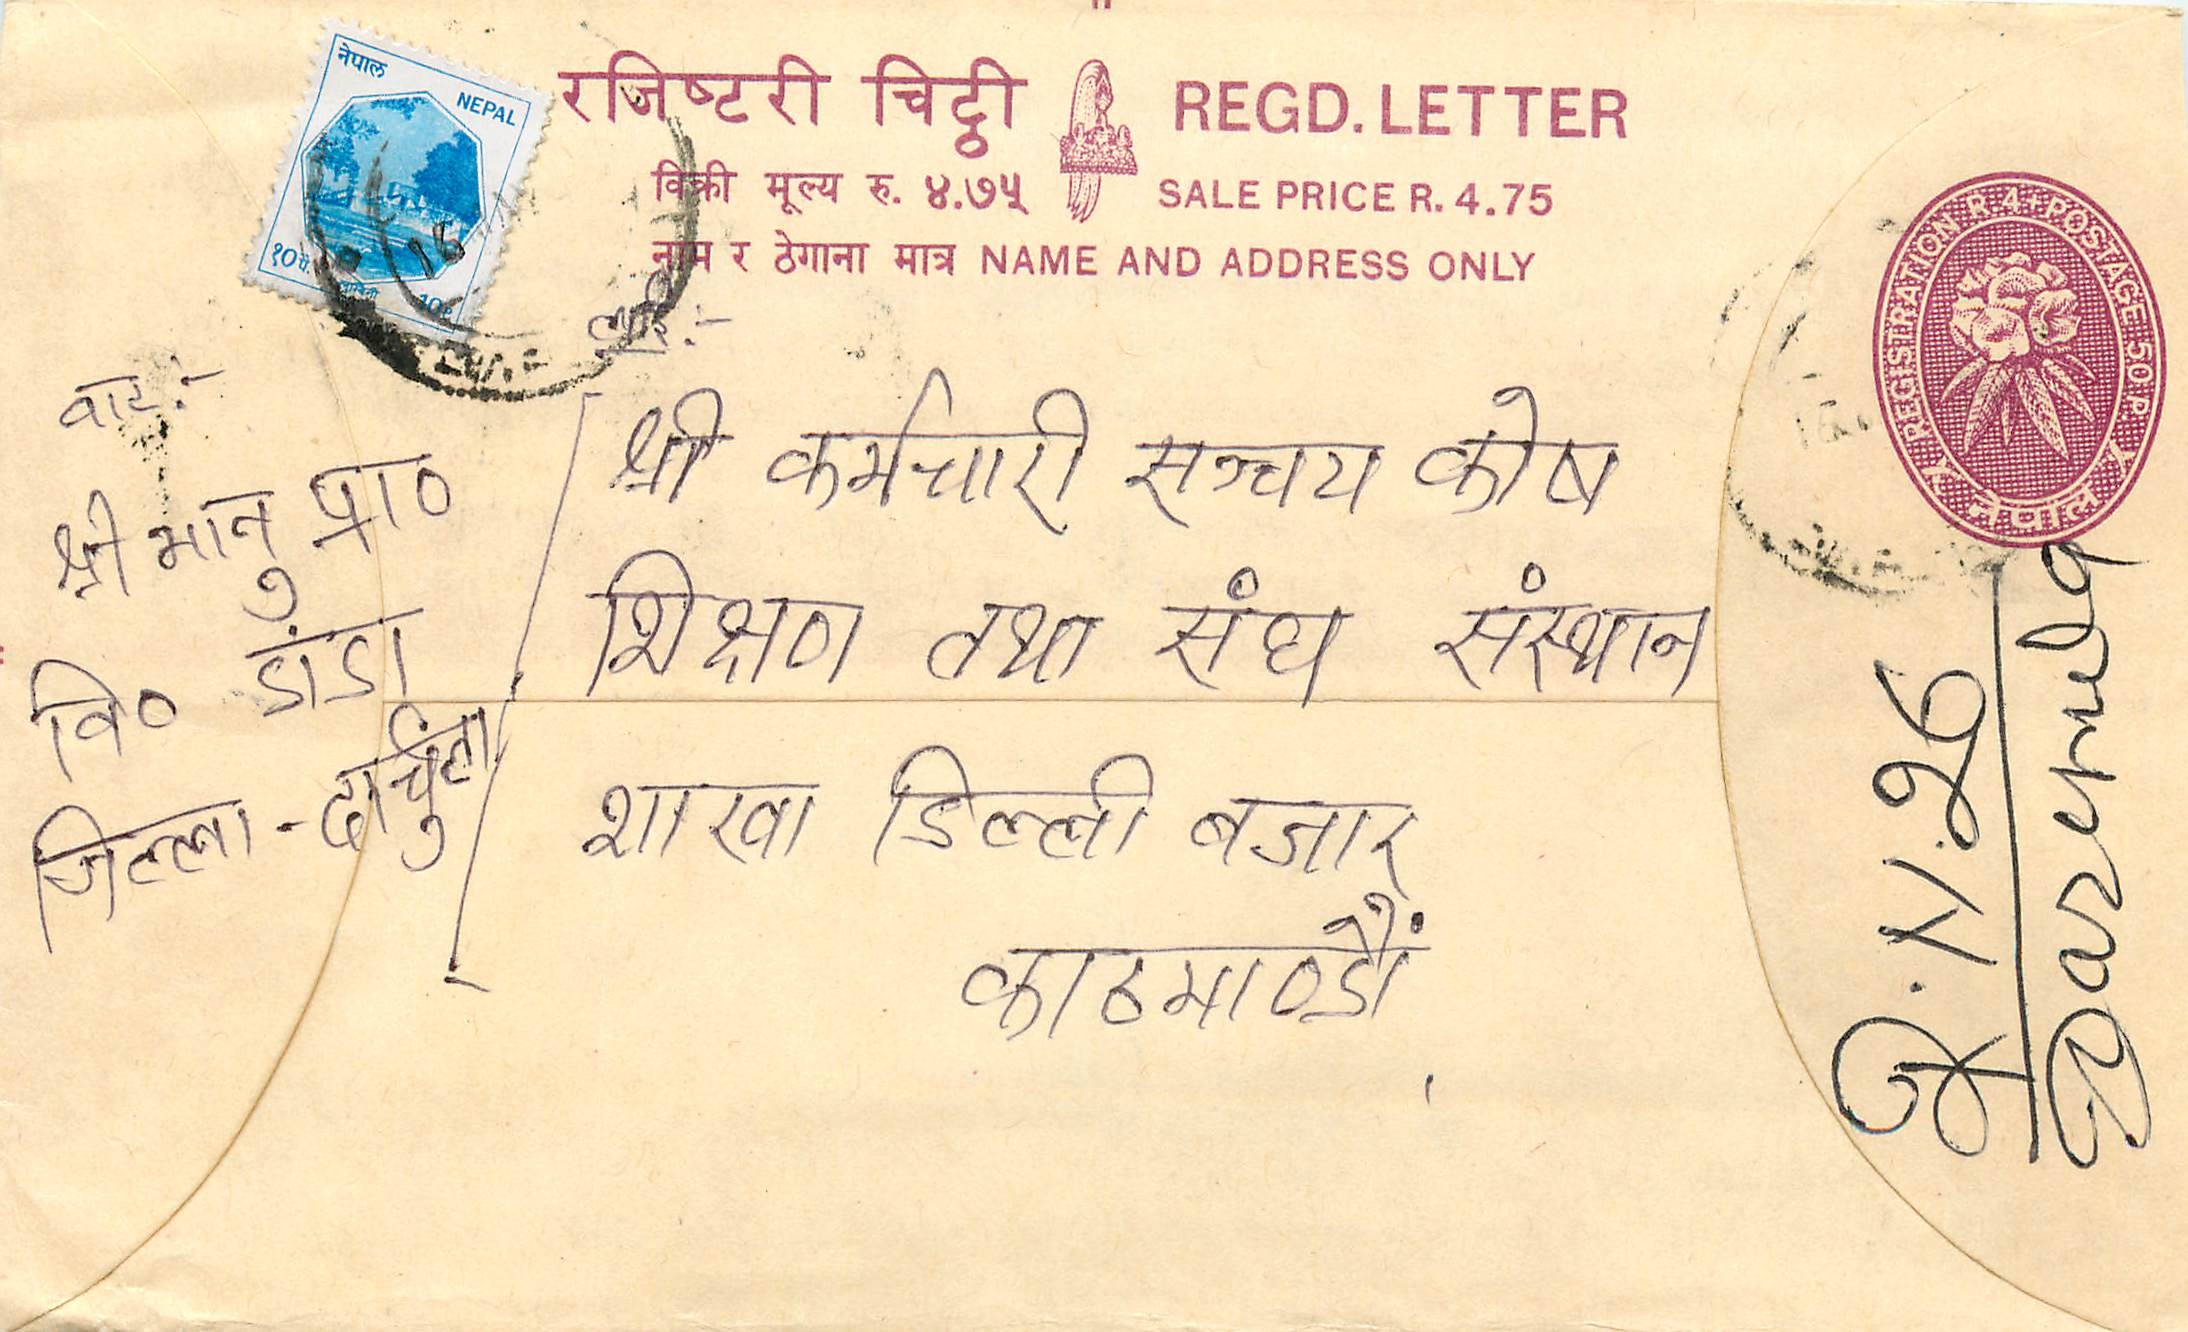 नेपाल
NEPAL
१० पै.
10 P.
रजिष्टरी चिट्ठी REGD. LETTER
विक्री मूल्य रु. ४.७५ SALE PRICE R. 4.75
नाम र ठेगाना मात्र NAME AND ADDRESS ONLY
REGISTRATION R. 4 + POSTAGE 50 P.
नेपाल
16
बाटः-
श्री भानु प्रा०
वि० डांडा
जिल्ला - दार्चुला
श्री कर्मचारी सञ्चय कोष
शिक्षण तथा संघ संस्थान
शाखा डिल्ली बजार
काठमाण्डौं
R. N. 26